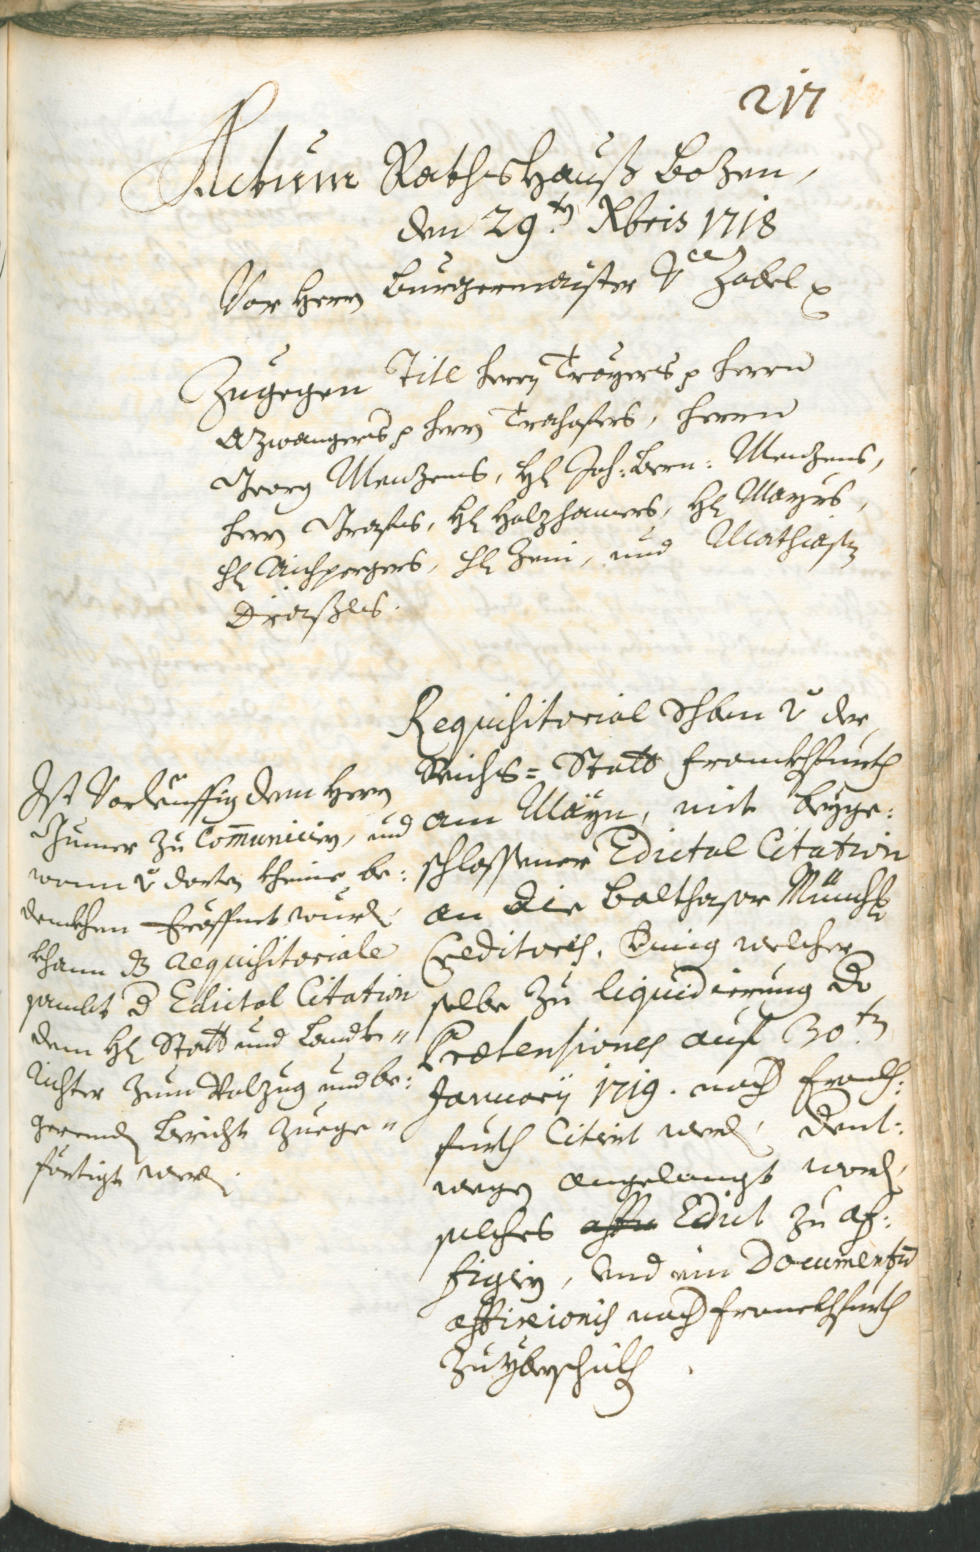 217
Actum Rathshauß Bozen,
den 29.ten Xbris 1718
Vor Herrn Burgermaister Zobel
Zugegen Titl Herrn Troyers p Herrn
Azwangers p Herrn Trahofers, Herrn
Georg Menzens, H: Joh: Bern: Menzens,
Herrn Grafens, H: Holzhamers, H: Mayrs,
H: Aichpergers, H: Zeni, und Mathias
Draxls.
Requisitorial Schben v: der
Reichs=Statt Franckhfurth
am Mayn, mit beyge:
schlossener Edictal Citation
an die Balthasar Münch
Creditores, Craft welcher
selbe zu liquidierung der
Praetensiones auf 30.ten
January 1719. nach Franck:
furth Citiert werden, dent:
wegen angelangt word
solches Edict zu af:
figirn, und ein Documentum
affixionis nach Franckhfurth
zu yberschickh.
Ist Vorleuffig dem Herrn
Giumer zu Communiciern, und
wann v: dorten kheine be:
denckhen Eröffnet wurde
khann dz Requisitoriale
sambt d Edictal Citation
dem H: Statt und Landt"
Richter zum Volzug und be:
gerend Bericht zuege"
förtigt werd.